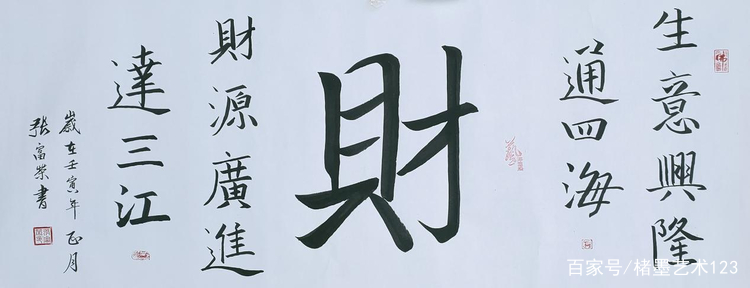 生意興隆
通四海
財
財源廣進
達三江
歲在壬寅年正月
張富榮書
百家号/楮墨艺术123